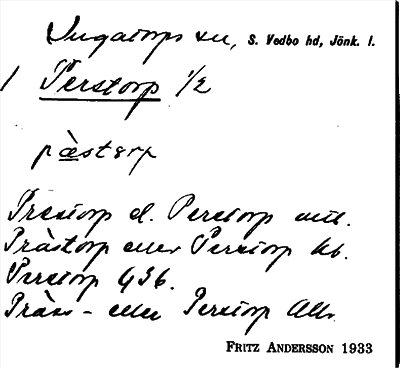 Ingatorps sn, S. Vedbo hd, Jönk. l.
1 Perstorp 1/2
pæstərp
Prestorp el. Perstorp
Pråstorp eller Perstorp Hb.
Perstorp G36.
- eller Perstorp Allm.
FRITZ ANDERSSON 1933